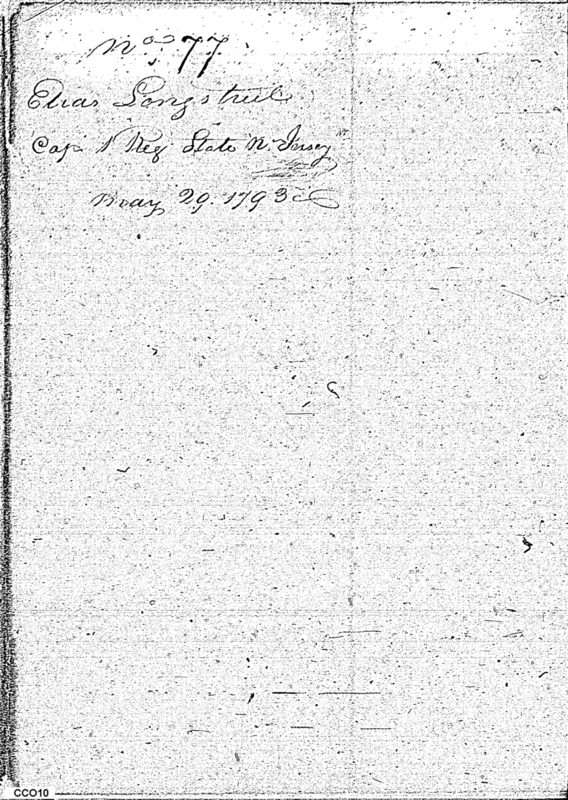 No. 77
Elias Longstreet
Cap 1 Reg State N. Jersey
May 29. 1793
CCO10